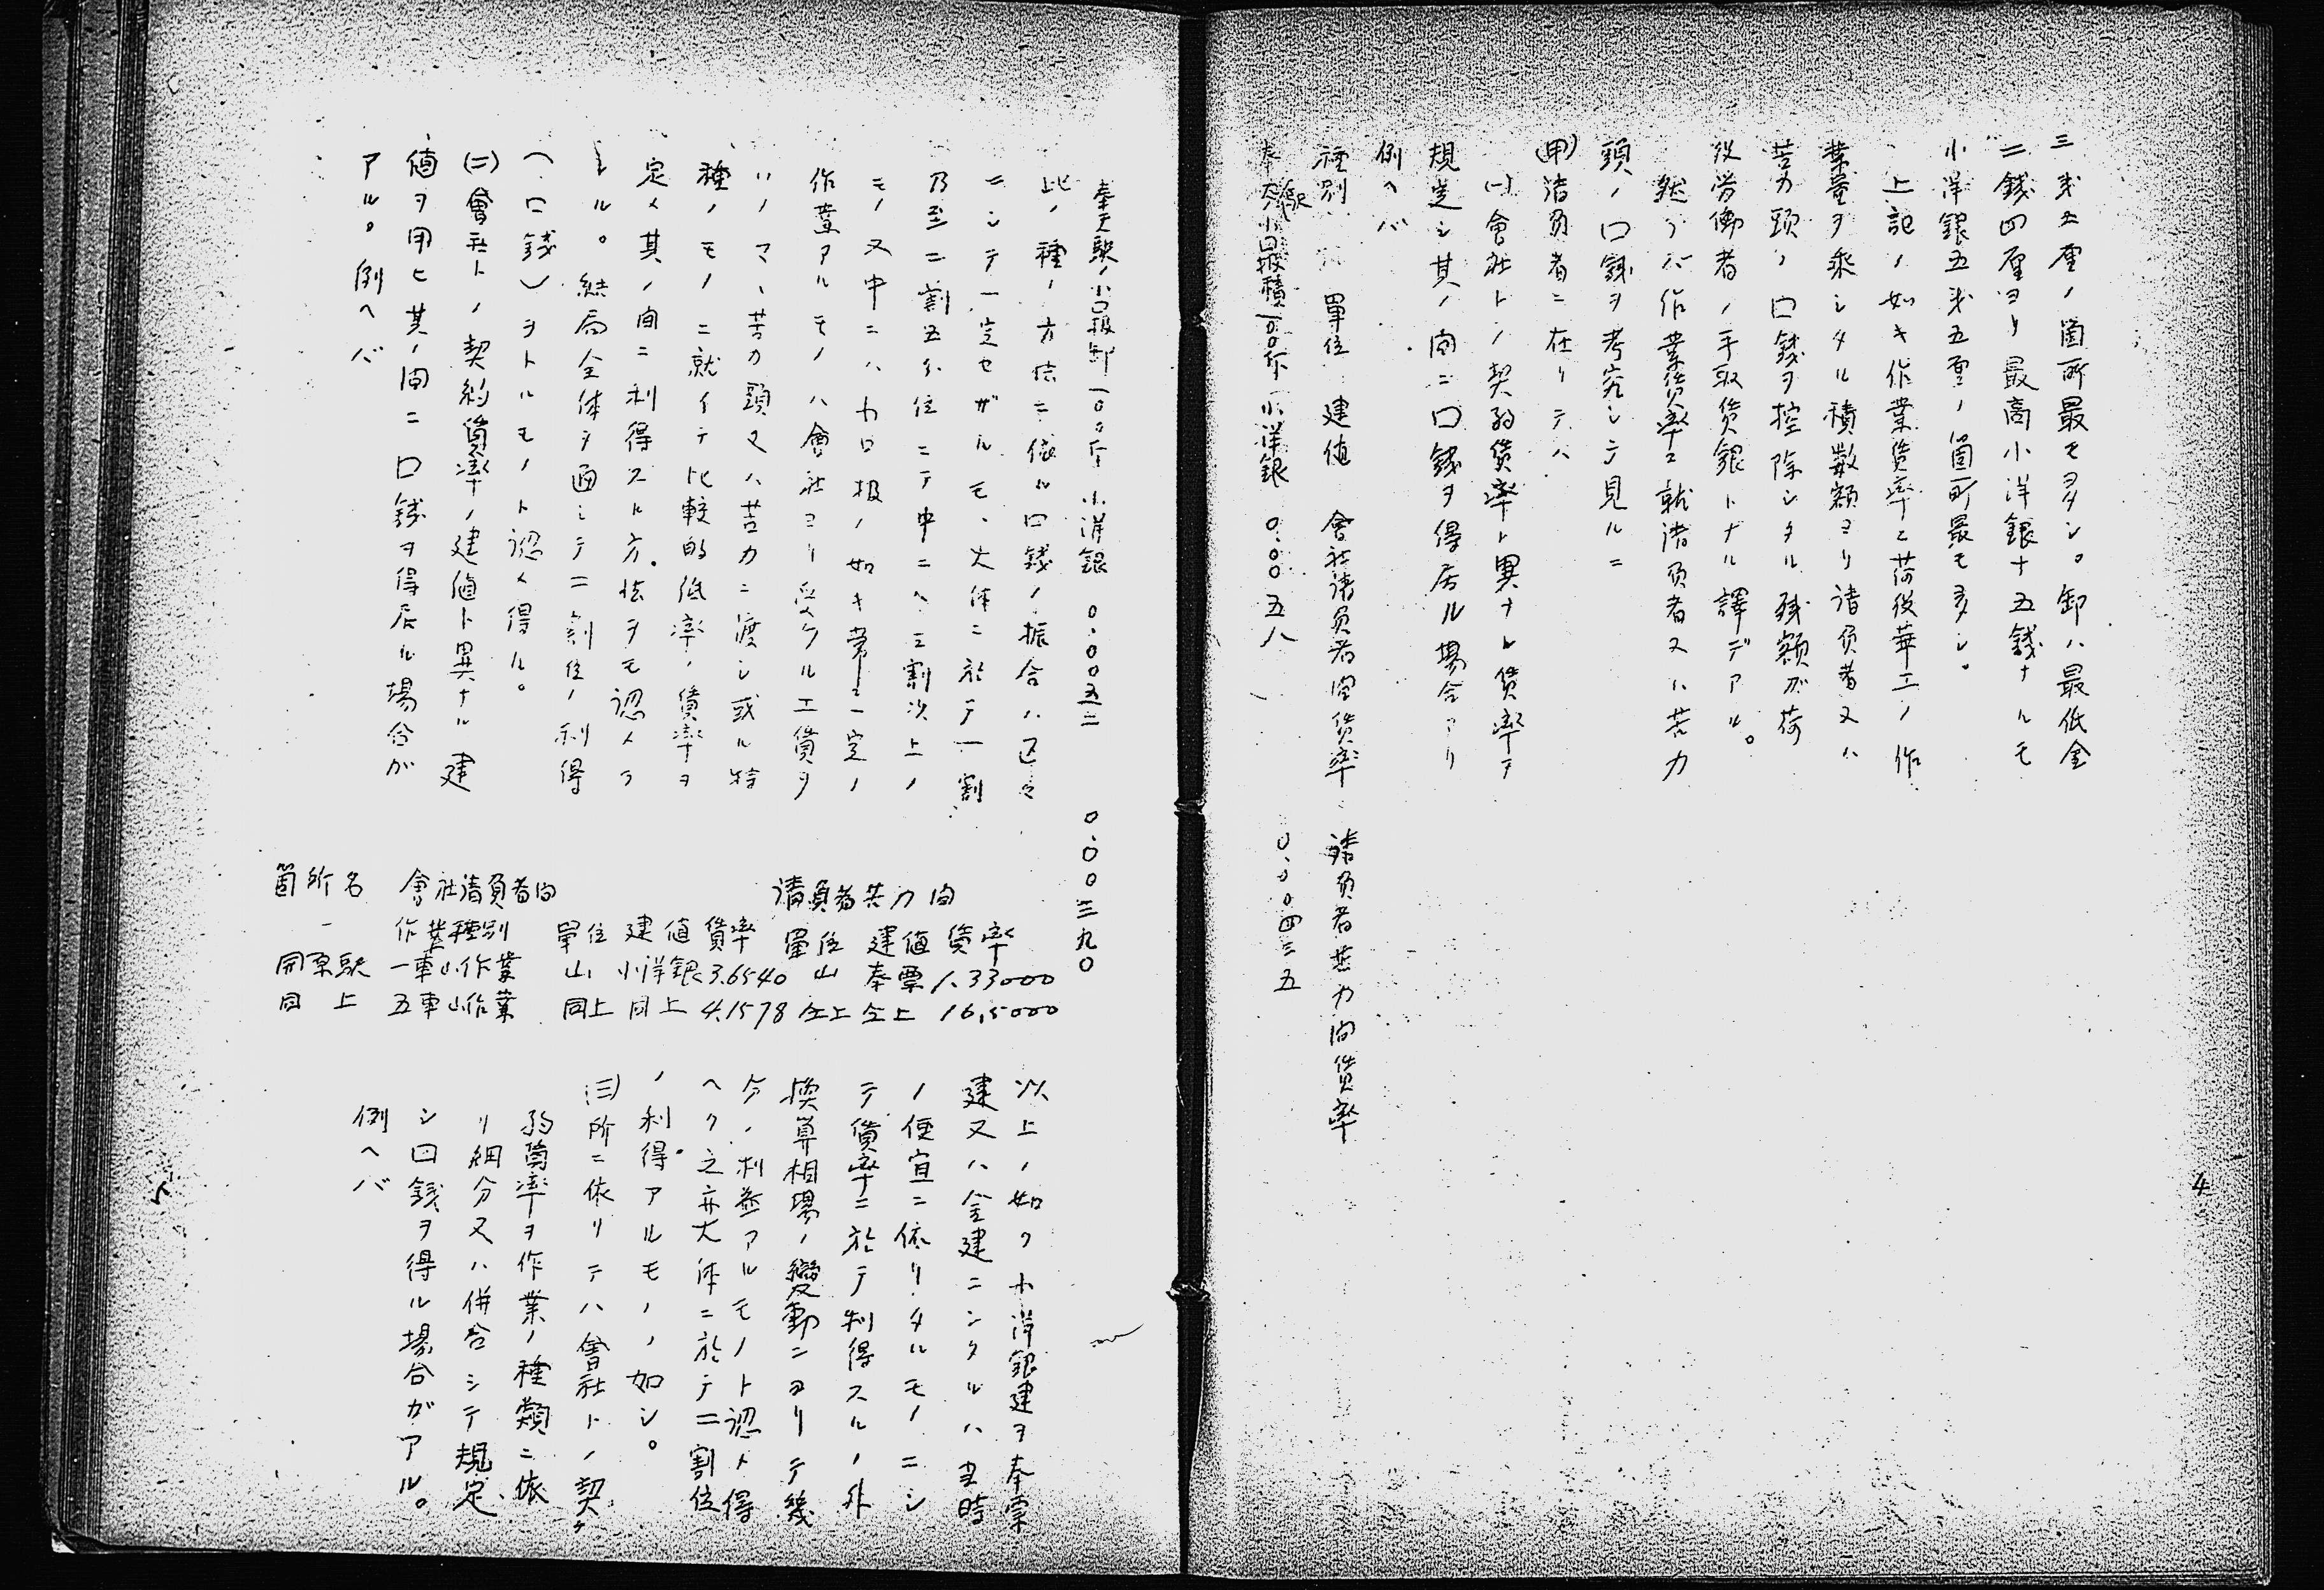 4
三銭五厘ノ箇所最モ多シ。卸ハ最低金
二銭四厘ヨリ最高小洋銀十五銭ナルモ
小洋銀五銭五厘ノ箇所最モ多シ。
上記ノ如キ作業賃率ニ荷役華工ノ作
業量ヲ乘シタル積数額ヨリ請負者又ハ
苦力頭ノ口銭ヲ控除シタル残額ガ荷
役労働者ノ手取賃銀トナル譯デアル。
然ラバ作業賃率ニ就請負者又ハ苦力
頭ノ口銭ヲ考究シテ見ルニ
(甲)請負者ニ在リテハ
(一)會社トノ契約賃率ト異ナル賃率ヲ
規定シ其ノ間ニ口銭ヲ得居ル場合アリ
例ヘバ
種別 單位 建値 會社請負者間賃率 請負者苦力間賃率
奉天駅小口扱積一〇〇斤 小洋銀 〇.〇〇五八 〇.〇〇四三五
奉天駅小口扱卸一〇〇斤 小洋銀 〇.〇〇五二 〇.〇〇三九〇
此ノ種ノ方法ニ依ル口銭ノ振合ハ区々
ニシテ一定セザルモ、大体ニ於テ一割
乃至二割五分位ニテ中ニハ三割以上ノ
モノ又中ニハ小口扱ノ如キ常ニ一定ノ
作業アルモノハ會社ヨリ受クル工賃ヲ
ソノママ苦力頭又ハ苦力ニ渡シ或ル特
種ノモノニ就イテ比較的低率ノ賃率ヲ
定メ其ノ間ニ利得スル方法ヲモ認メラ
レル。結局全体ヲ通シテ二割位ノ利得
(口銭)ヲトルモノト認メ得ル。
(二)會社トノ契約賃率ノ建値ト異ナル建
値ヲ用ヒ其ノ間ニ口銭ヲ得居ル場合ガ
アル。例ヘバ
箇所名 會社請負者間 請負者共力間
作業種別 單位 建値 賃率 單位 建値 賃率
開原駅 一車山作業 山 小洋銀 3.6540 山 奉票 1.33000
同上 五車山作業 同上 同上 4.1578 仝上 仝上 16,5000
以上ノ如ク小洋銀建ヲ奉票
建又ハ金建ニシタルハ当時
ノ便宜ニ依リタルモノニシ
テ賃率ニ於テ利得スルノ外
換算相場ノ變動ニヨリテ幾
分ノ利益アルモノト認メ得
ヘク之亦大体ニ於テ二割位
ノ利得アルモノノ如シ。
(三)所ニ依リテハ會社トノ契
約賃率ヲ作業ノ種類ニ依
リ細分又ハ併合シテ規定
シ口銭ヲ得ル場合ガアル。
例ヘバ